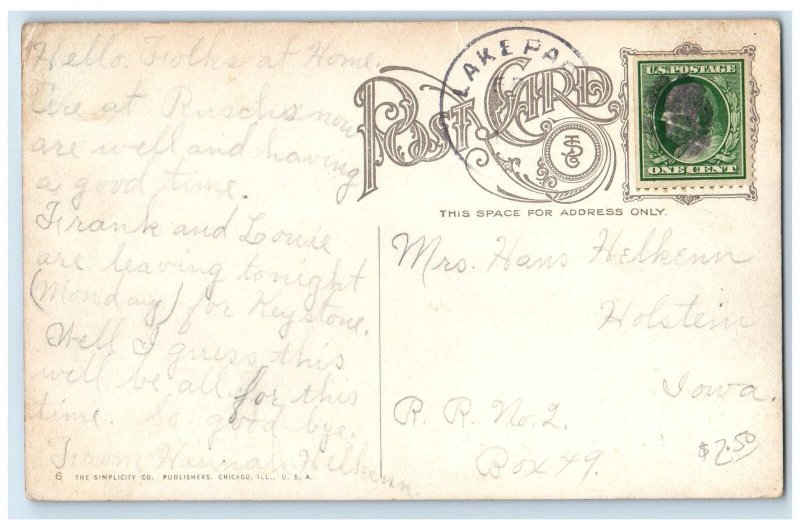 Hello Folks at Home.
are at Ruschs now
are well and having
a good time.
Frank and Louie
are leaving tonight
(Monday) for Keystone.
Well I guess this
will be all for this
time. So good bye.
From Hannah Helkenn.
6 THE SIMPLICITY CO. PUBLISHERS, CHICAGO, ILL., U. S. A.
POST CARD
LAKE PA
THIS SPACE FOR ADDRESS ONLY.
U.S. POSTAGE
ONE CENT
Mrs. Hans Helkenn
Holstein
Iowa.
R. R. No. 2.
Box 49.
$2.50